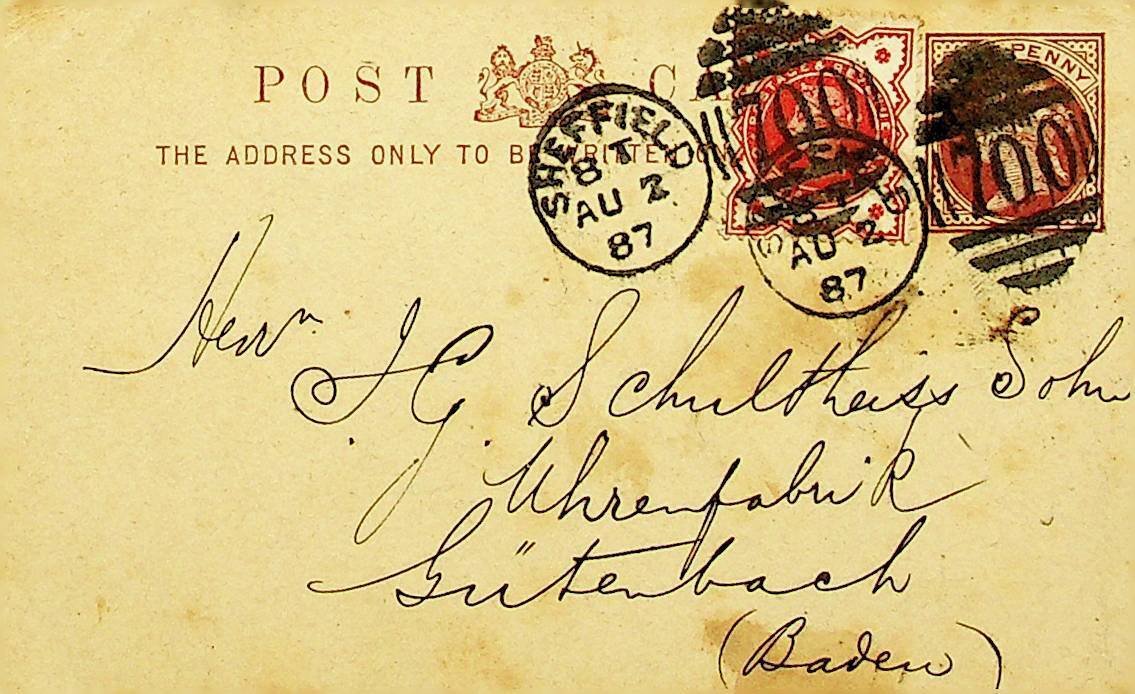 POST C
THE ADDRESS ONLY TO BE WRITTEN
PENNY
700
700
SHEFFIELD
8 T
AU 2
87
AU 2
87
Herrn
J. G. Schultheiss Sohn
Uhrenfabrik
Gütenbach
(Baden)